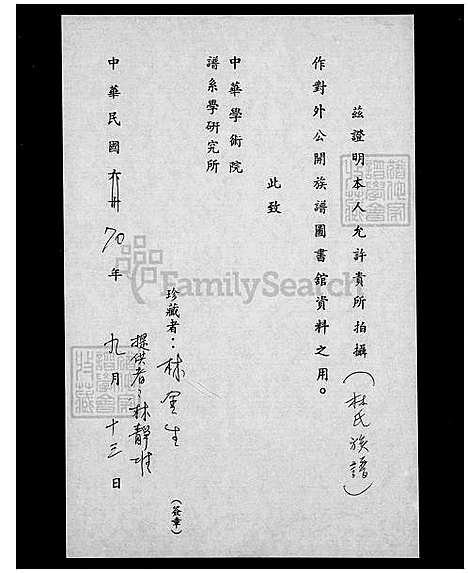 茲證明本人允許貴所拍攝(林氏族譜)
作對外公開族譜圖書館資料之用。
此致
中華學術院
譜系學研究所
珍藏者：林金生
(簽章)
提供者：林靜
中華民國70年九月十三日
FamilySearch